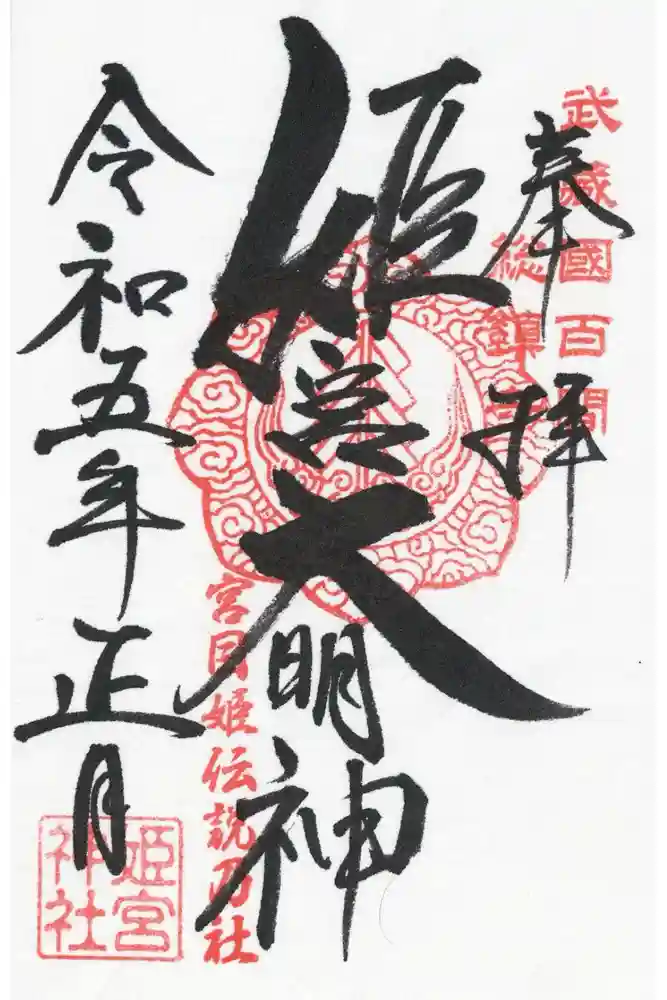 奉拝
武蔵國百間
総鎮守
姫宮大明神
宮目姫伝説乃社
令和五年正月
姫宮
神社